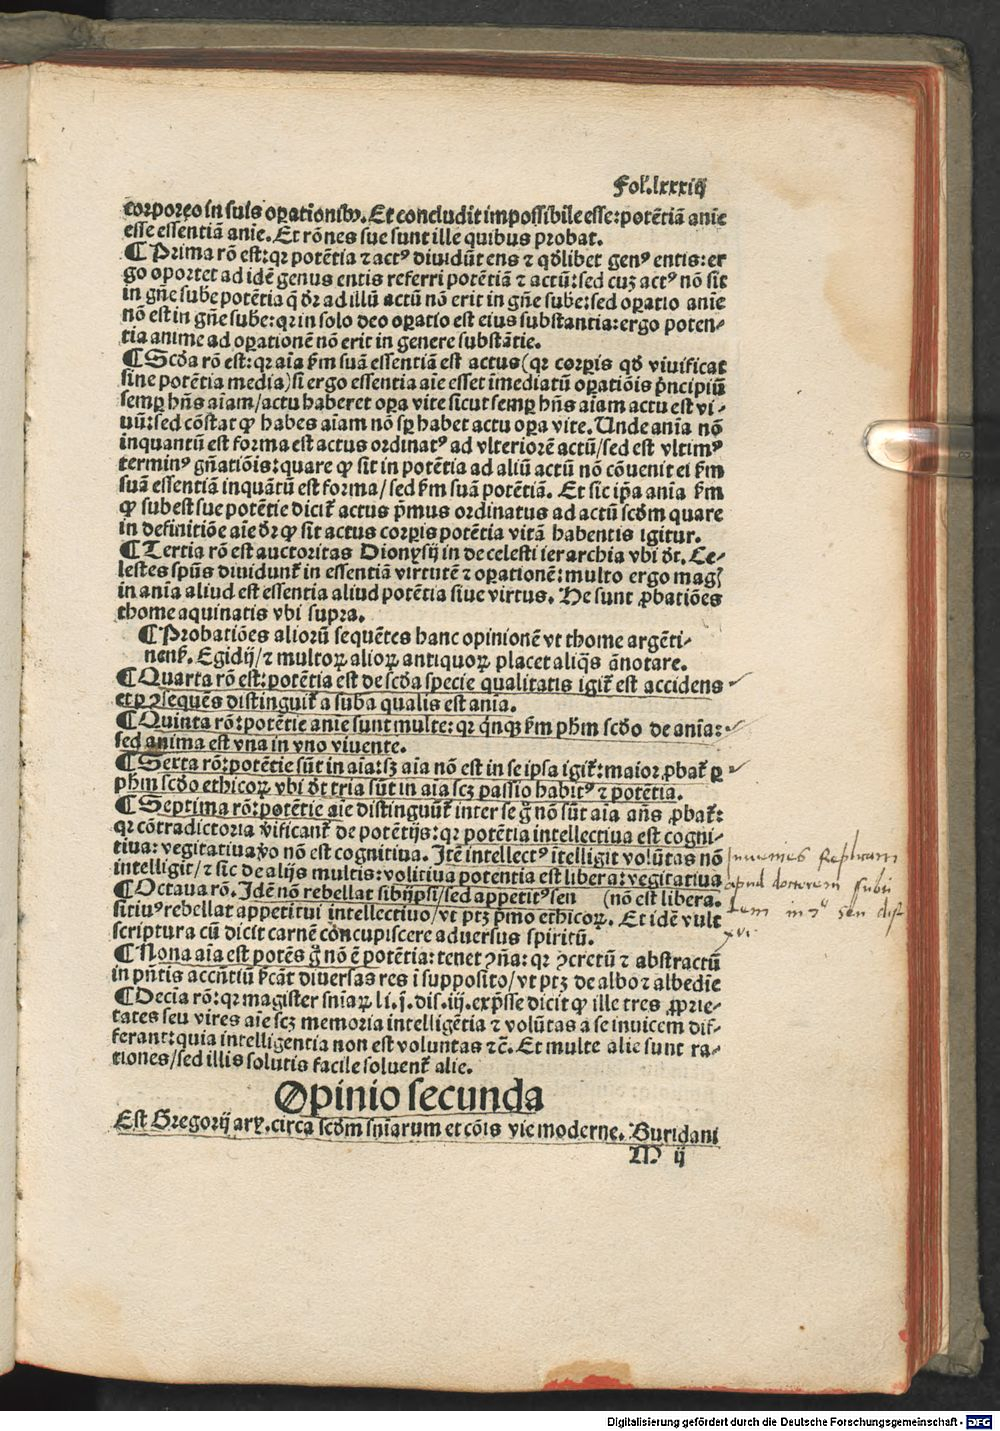 Fol. lxxxiij
corporeo in suis oꝑationibꝫ. Et concludit impossibile esse: potẽtiã anie
esse essentiã anie. Et rõnes sue sunt ille quibus probat.
¶ Prima rõ est: qꝛ potẽtia ⁊ actꝰ diuidũt ens ⁊ qdlibet genꝰ entis: er
go oportet ad idẽ genus entis referri potẽtiã ⁊ actũ: sed cuz actꝰ nõ sit
in gñe sube potẽtia q̃ dr ad illũ actũ nõ erit in gñe sube: sed oꝑatio anie
nõ est in gñe sube: qꝛ in solo deo oꝑatio est eius substantia: ergo poten⸗
tia anime ad oꝑationẽ nõ erit in genere substãtie.
¶ Scda rõ est: qꝛ aĩa ẜm suã essentiã est actus (qꝛ corꝑis qd viuificat
sine potẽtia media) si ergo essentia aĩe esset ĩmediatũ oꝑatiõis pͥncipiũ
semꝑ hñs aĩam/ actu haberet oꝑa vite sicut semꝑ hñs aĩam actu est vi⸗
uũ: sed cõstat ꝙ habẽs aĩam nõ sꝑ habet actu oꝑa vite. Unde anĩa nõ
inquantũ est forma est actus ordinatꝰ ad vlteriorẽ actũ/ sed est vltimꝰ
terminꝰ gñatiõis: quare ꝙ sit in potẽtia ad aliũ actũ nõ cõuenit ei ẜm
suã essentiã inquãtũ est forma/ sed ẜm suã potẽtiã. Et sic ip̃a anĩa ẜm
ꝙ subest sue potẽtie dicit᷑ actus pͥmus ordinatus ad actũ scdm quare
in definitiõe aĩe dr ꝙ sit actus corꝑis potẽtia vitã habentis igitur.
¶ Tertia rõ est auctoritas Dionysij in de celesti ierarchia vbi dt. Ce⸗
lestes spũs diuidunt᷑ in essentiã virtutẽ ⁊ oꝑationẽ: multo ergo magꝭ
in anĩa aliud est essentia aliud potẽtia siue virtus. He sunt ꝓbatiões
thome aquinatis vbi supra.
¶ Probatiões aliorũ sequẽtes hanc opinionẽ vt thome argẽti⸗
neñ. Egidij/ ⁊ multoꝝ alioꝝ antiquoꝝ placet aliq̃s ãnotare.
¶ Quarta rõ est: potẽtia est de scda specie qualitatis igit᷑ est accidens
et ꝑ ꝯsequẽs distinguit᷑ a suba qualis est anĩa.
¶ Quinta rõ: potẽtie anĩe sunt multe: qꝛ qͥnqꝫ ẜm phm̃ scdo de anĩa:
sed anima est vna in vno viuente.
¶ Sexta rõ: potẽtie sũt in aĩa: sꝫ aĩa nõ est in se ipsa igit᷑: maior ꝓbat᷑ ꝑ
phm̃ scdo ethicoꝝ vbi dt tria sũt in aĩa scꝫ passio habitꝰ ⁊ potẽtia.
¶ Septima rõ: potẽtie aĩe distinguũt᷑ inter se g̊ nõ sũt aĩa añs ꝓbat᷑:
qꝛ cõtradictoria vͥificant᷑ de potẽtijs: qꝛ potẽtia intellectiua est cogni⸗
tiua: vegitatiua ꝟo nõ est cognitiua. Itẽ intellectꝰ ĩtelligit volũtas nõ
intelligit/ ⁊ sic de alijs multis: volitiua potentia est libera: vegitatiua
¶ Octaua rõ. Idẽ nõ rebellat sibijpsi/ sed appetitꝰ sen (nõ est libera.
sitiuꝰ rebellat appetitui intellectiuo/ vt ptꝫ pͥmo ethicoꝝ. Et idẽ vult
scriptura cũ dicit carnẽ concupiscere aduersus spiritũ.
¶ Nona aĩa est potẽs g̊ nõ ẽ potẽtia: tenet ꝯña: qꝛ ꝯcretũ ⁊ abstractũ
in pñtis accñtiũ ẜcãt diuersas res ĩ supposito/ vt ptꝫ de albo ⁊ albedĩe
¶ Decĩa rõ: qꝛ magister sniaꝝ li. j. dis. iij. exp̃sse dicit ꝙ ille tres ꝓprie⸗
tates seu vires aĩe scꝫ memoria intelligẽtia ⁊ volũtas a se inuicem dif⸗
ferant: quia intelligentia non est voluntas ⁊c̃. Et multe alie sunt ra⸗
tiones/ sed illis solutis facile soluent᷑ alie.
Opinio secunda
Est Gregorij arĩ. circa scdm sniarum et cõis vie moderne. Buridani
M ij
Inuenies Replicam
apud doctorem subti
lem in 2° sen dist
xvi.
Digitalisierung gefördert durch die Deutsche Forschungsgemeinschaft - DFG